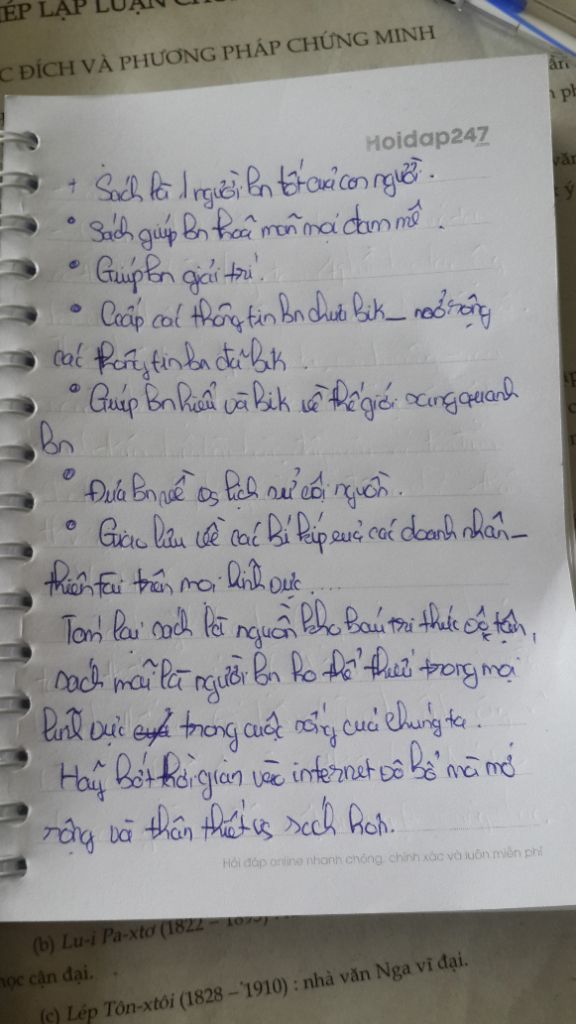 ÉP LẬP LUẬN
C ĐÍCH VÀ PHƯƠNG PHÁP CHỨNG MINH
Hoidap247
+ Sách là 1 người bn tốt của con người.
• Sách giúp bn thoả mãn mọi đam mê.
• Giúp bn giải trí.
• Ccấp các thông tin bn chưa bik_ mở rộng
các thông tin bn đã bik.
• Giúp bn hiểu và bik về thế giới xung quanh
bn
• Đưa bn về vs lịch sử cội nguồn.
• Giao lưu về các bí kíp của các doanh nhân_
thiên tài trên mọi lĩnh vực....
Tóm lại sách là nguồn kho báu tri thức vô tận,
sách mãi là người bn ko thể thiếu trong mọi
lĩnh vực trong cuộc sống của chúng ta.
Hãy bớt thời gian vào internet vô bổ mà mở
rộng và thân thiết vs sách hơn.
Hỏi đáp online nhanh chóng, chính xác và luôn miễn phí
(b) Lu-i Pa-xtơ (1822 – 1895)
học cận đại.
(c) Lép Tôn-xtôi (1828 – 1910) : nhà văn Nga vĩ đại.